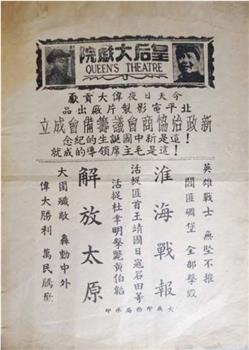 皇后大戲院
QUEEN'S THEATRE
今天日夜偉大貢獻
北平電影製片廠出品
新政治協商會議籌備會成立
這是新中國誕生的紀念!
這是毛主席領導的成就!
英雄戰士 無堅不摧
閻匪碉堡 全部擊毀
淮海戰報
活捉匪首王靖國日寇石田等
活捉杜聿明擊斃黃伯韜
解放太原
大圍殲敵 轟動中外
偉大勝利 萬民騰歡